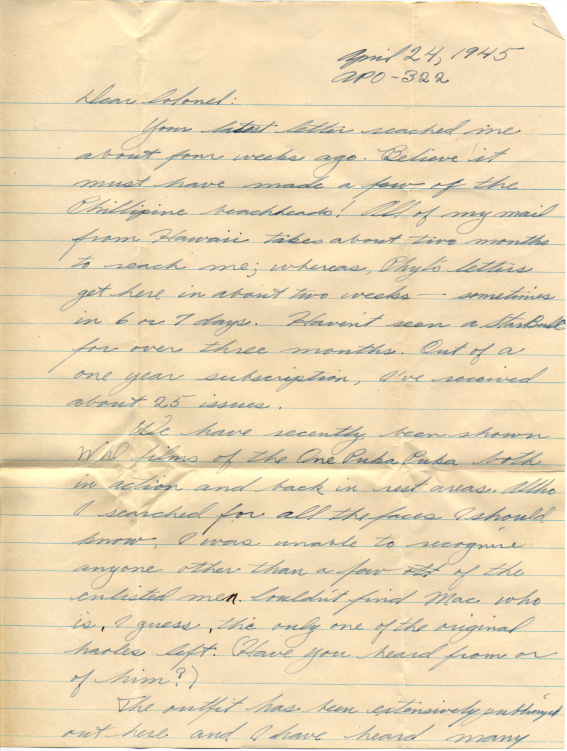 April 24, 1945
APO-322
Dear Colonel:
Your latest letter reached me
about four weeks ago. Believe it
must have made a few of the
Phillipine beachheads! All of my mail
from Hawaii takes about two months
to reach me; whereas, Phyl's letters
get here in about two weeks — sometimes
in 6 or 7 days. Haven't seen a StarBull
for over three months. Out of a
one year subscription, I've received
about 25 issues.
We have recently been shown
films of the One Puka Puka both
in action and back in rest areas. Altho
I searched for all the faces I should
know, I was unable to recognize
anyone other than a few of the
enlisted men. Couldn't find Mac who
is, I guess, the only one of the original
haoles left. (Have you heard from or
of him?)
The outfit has been extensively publicized
out here and I have heard many